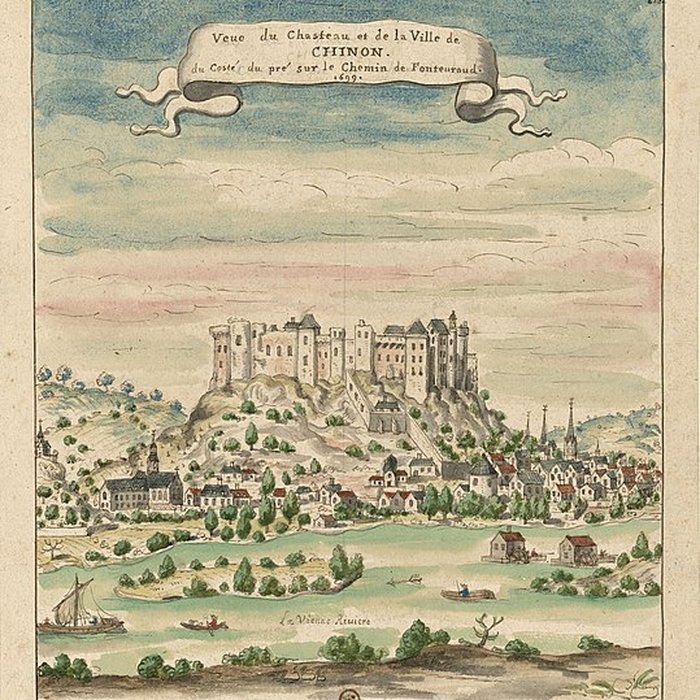 Veue du Chasteau et de la Ville de
CHINON.
du Costé du pré sur le Chemin de Fonteuraud.
1699.
La Vienne Riviere